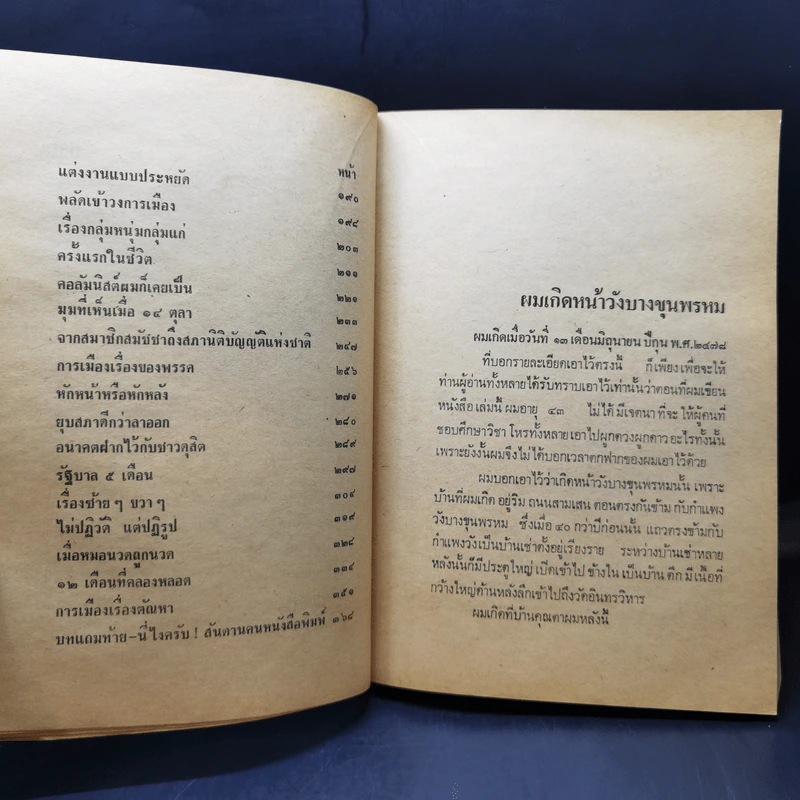 หน้า
แต่งงานแบบประหยัด ๑๙๐
พลัดเข้าวงการเมือง ๑๙๘
เรื่องกลุ่มหนุ่มกลุ่มแก่ ๒๐๓
ครั้งแรกในชีวิต ๒๑๑
คอลัมนิสต์ผมก็เคยเป็น ๒๒๑
มุมที่เห็นเมื่อ ๑๔ ตุลา ๒๓๓
จากสมาชิกสมัชชาถึงสภานิติบัญญัติแห่งชาติ ๒๔๗
การเมืองเรื่องของพรรค ๒๕๖
หักหน้าหรือหักหลัง ๒๗๑
ยุบสภาดีกว่าลาออก ๒๘๐
อนาคตฝากไว้กับชาวดุสิต ๒๘๙
รัฐบาล ๕ เดือน ๒๙๗
เรื่องซ้าย ๆ ขวา ๆ ๓๐๔
ไม่ปฏิวัติ แต่ปฏิรูป ๓๑๙
เมื่อหมอนวดถูกนวด ๓๒๘
๑๒ เดือนที่ตลองหลอด ๓๓๔
การเมืองเรื่องตัณหา ๓๕๑
บทแถมท้าย-นี่ไงครับ ! สันดานคนหนังสือพิมพ์ ๓๖๘
ผมเกิดหน้าวังบางขุนพรหม
ผมเกิดเมื่อวันที่ ๑๓ เดือนมิถุนายน ปีกุน พ.ศ.๒๔๗๘
ที่บอกรายละเอียดเอาไว้ตรงนี้ ก็เพียงเพื่อจะให้
ท่านผู้อ่านทั้งหลายได้รับทราบเอาไว้เท่านั้นว่าตอนที่ผมเขียน
หนังสือเล่มนี้ ผมอายุ ๔๓ ไม่ได้ มีเจตนา ที่จะ ให้ผู้คนที่
ชอบศึกษาวิชา โหรทั้งหลายเอาไปผูกดวงผูกดาว อะไรทั้งนั้น
เพราะยังงั้นผมจึงไม่ได้บอกเวลาตกฟากของผมเอาไว้ด้วย
ผมบอกเอาไว้ว่าเกิดหน้าวังบางขุนพรหมนั้น เพราะ
บ้านที่ผมเกิด อยู่ริม ถนนสามเสน ตอนตรงกันข้าม กับกำแพง
วังบางขุนพรหม ซึ่งเมื่อ ๔๐ กว่าปีก่อนนั้น แถวตรงข้ามกับ
กำแพงวังเป็นบ้านเช่าตั้งอยู่เรียงราย ระหว่างบ้านเช่าหลาย
หลังนั้นก็มีประตูใหญ่ เปิดเข้าไป ข้างใน เป็นบ้าน ตึก มี เนื้อที่
กว้างใหญ่ด้านหลังลึกเข้าไปถึงวัดอินทรวิหาร
ผมเกิดที่บ้านคุณตาผมหลังนี้